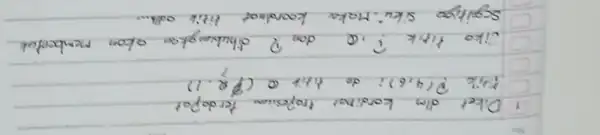 1. Diket dlm kordinat trapesium terdapat
titik P(4,6); do titik Q (7, 1)
Jika titik P, Q, dan R dihubungkan akan membentuk
Segitiga siku". Maka koordinat titik adlh...